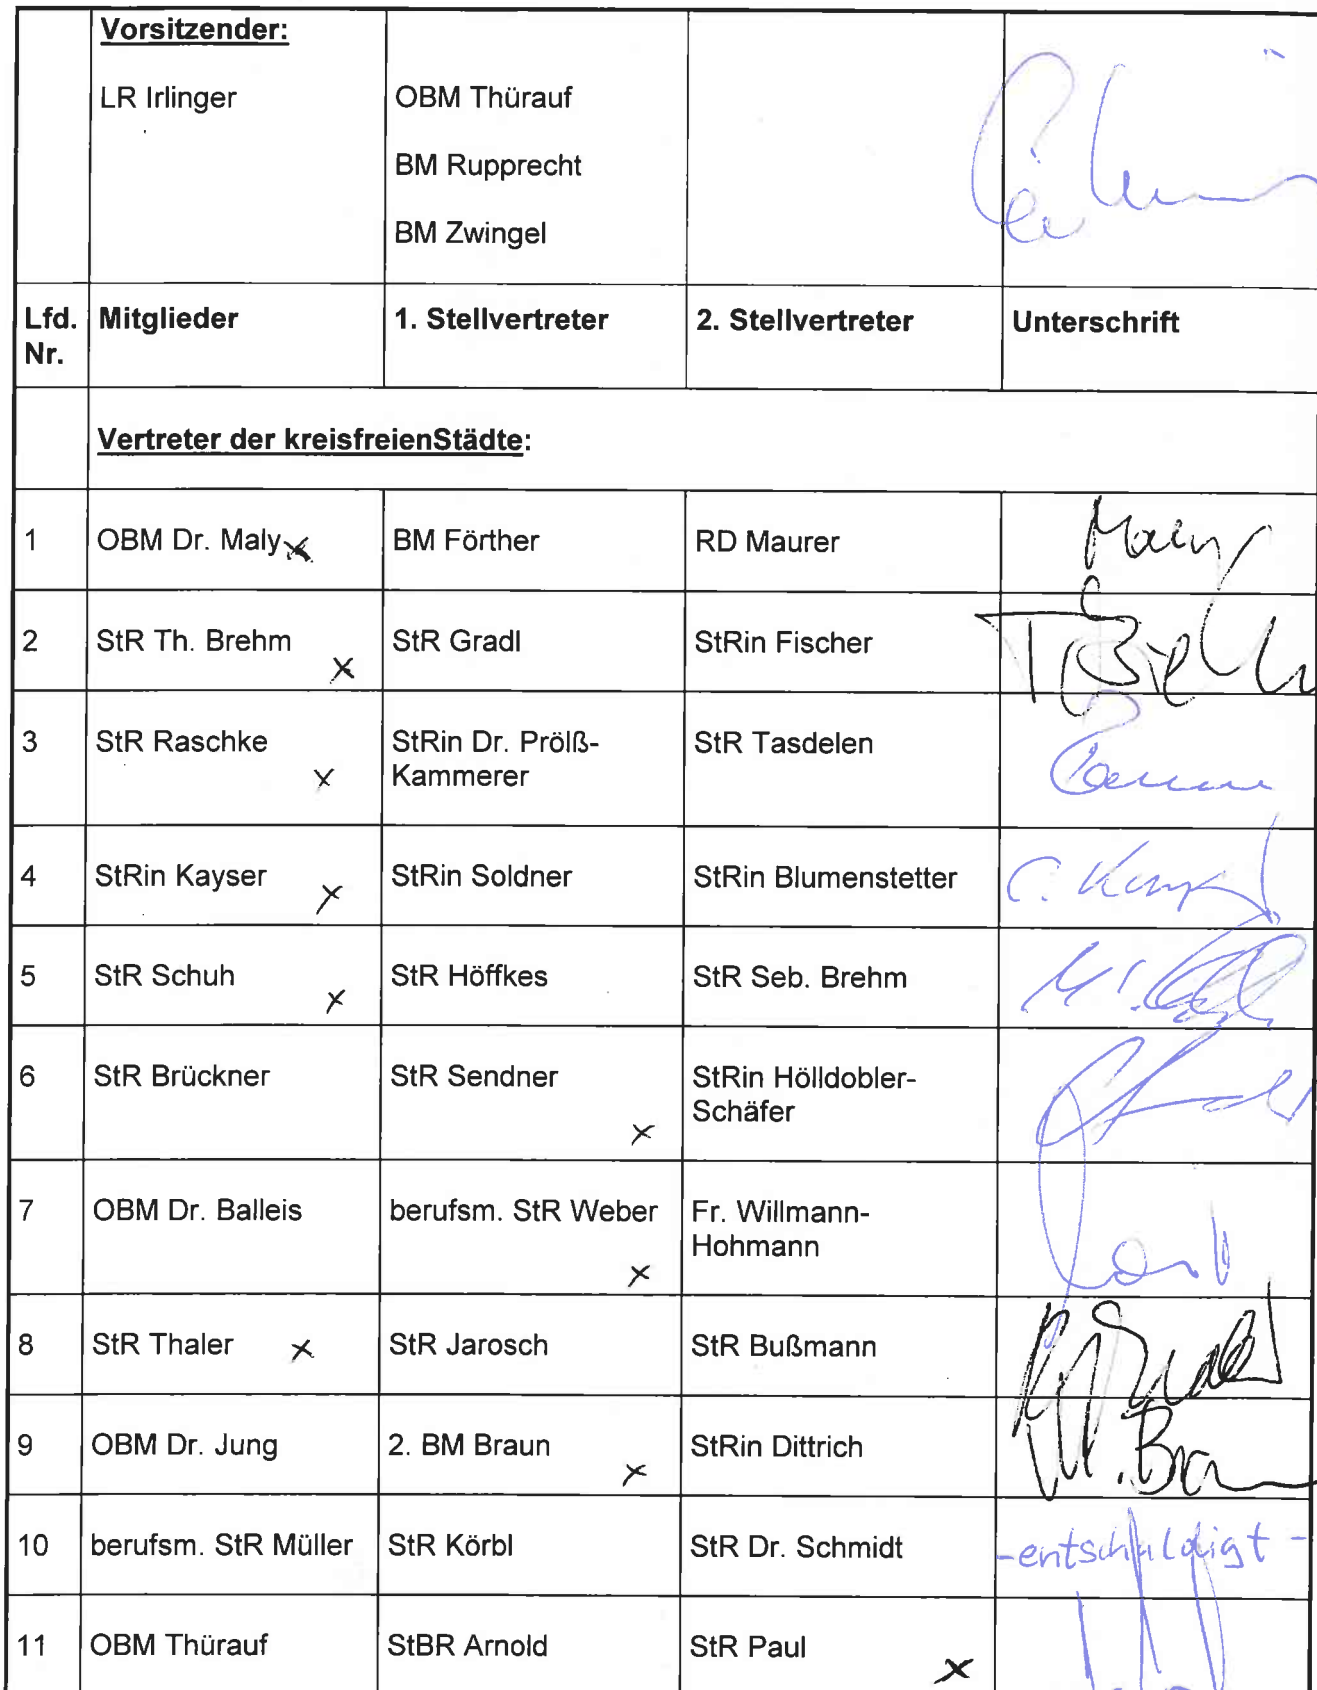 Vorsitzender:
LR Irlinger
OBM Thürauf
BM Rupprecht
BM Zwingel
Lfd. Nr.
Mitglieder
1. Stellvertreter
2. Stellvertreter
Unterschrift
Vertreter der kreisfreienStädte:
1 OBM Dr. Maly x BM Förther RD Maurer Maly
2 StR Th. Brehm x StR Gradl StRin Fischer
3 StR Raschke x StRin Dr. Prölß- StR Tasdelen
Kammerer
4 StRin Kayser x StRin Soldner StRin Blumenstetter
5 StR Schuh x StR Höffkes StR Seb. Brehm
6 StR Brückner StR Sendner x StRin Hölldobler-
Schäfer
7 OBM Dr. Balleis berufsm. StR Weber x Fr. Willmann-
Hohmann
8 StR Thaler x StR Jarosch StR Bußmann
9 OBM Dr. Jung 2. BM Braun x StRin Dittrich
10 berufsm. StR Müller StR Körbl StR Dr. Schmidt -entschuldigt-
11 OBM Thürauf StBR Arnold StR Paul x